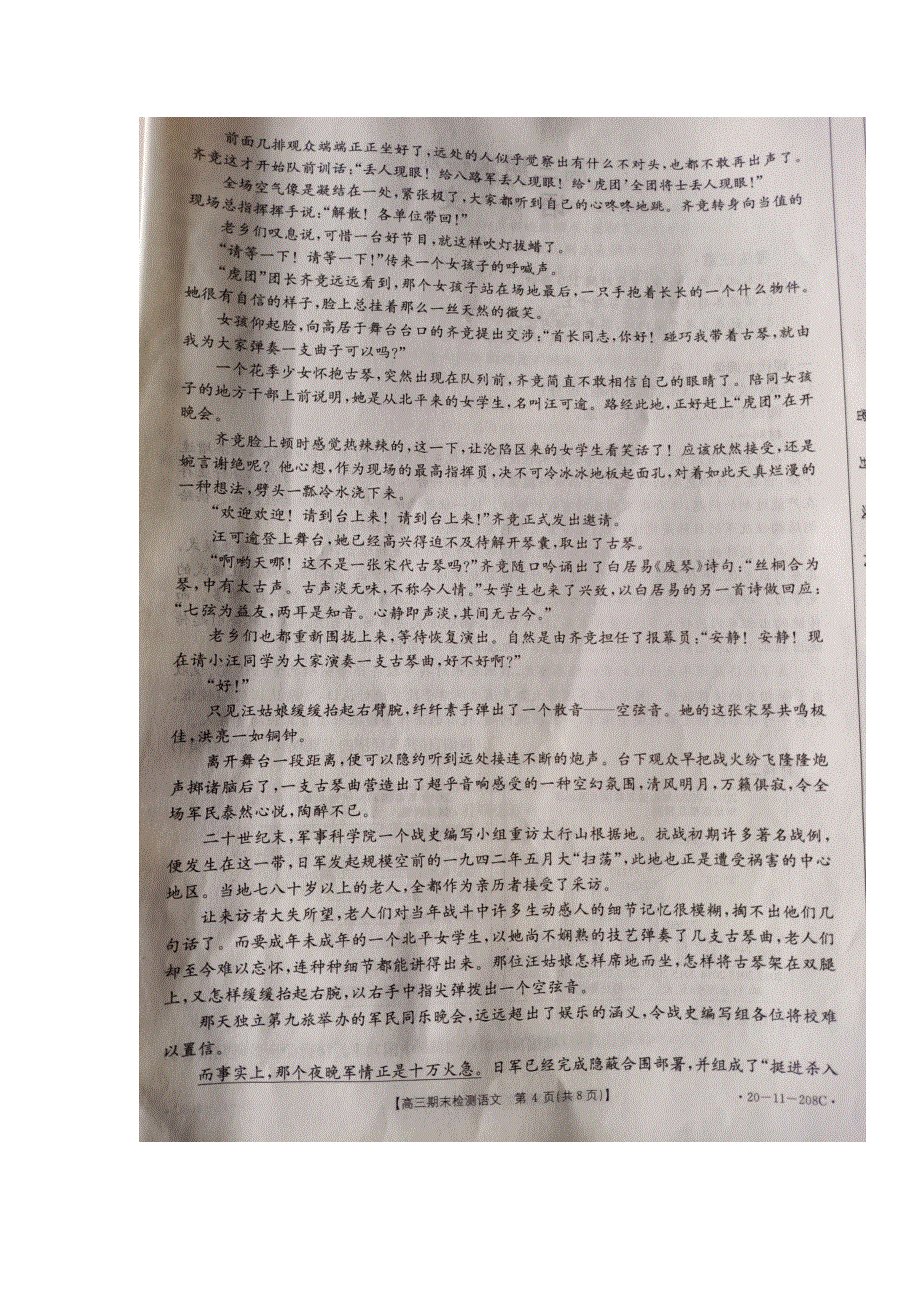 前面几排观众端端正正坐好了，远处的人似乎觉察出有什么不对头，也都不敢再出声了。
齐竞这才开始队前训话：“丢人现眼！给八路军丢人现眼！给‘虎团’全团将士丢人现眼！”
全场空气像是凝结在一处，紧张极了，大家都听到自己的心咚咚地跳。齐竞转身向当值的
现场总指挥挥手说：“解散！各单位带回！”
老乡们叹息说，可惜一台好节目，就这样吹灯拔蜡了。
“请等一下！请等一下！”传来一个女孩子的呼喊声。
“虎团”团长齐竞远远看到，那个女孩子站在场地最后，一只手抱着长长的一个什么物件。
她很有自信的样子，脸上总挂着那么一丝天然的微笑。
女孩仰起脸，向高居于舞台台口的齐竞提出交涉：“首长同志，你好！碰巧我带着古琴，就由
我为大家弹奏一支曲子可以吗？”
一个花季少女怀抱古琴，突然出现在队列前，齐竞简直不敢相信自己的眼睛了。陪同女孩
子的地方干部上前说明，她是从北平来的女学生，名叫汪可逾。路经此地，正好赶上“虎团”在开
晚会。
齐竞脸上顿时感觉热辣辣的，这一下，让沦陷区来的女学生看笑话了！应该欣然接受，还是
婉言谢绝呢？他心想，作为现场的最高指挥员，决不可冷冰冰地板起面孔，对着如此天真烂漫的
一种想法，劈头一瓢冷水浇下来。
“欢迎欢迎！请到台上来！请到台上来！”齐竞正式发出邀请。
汪可逾登上舞台，她已经高兴得迫不及待解开琴囊，取出了古琴。
“啊哟天哪！这不是一张宋代古琴吗？”齐竞随口吟诵出了白居易《废琴》诗句：“丝桐合为
琴，中有太古声。古声淡无味，不称今人情。”女学生也来了兴致，以白居易的另一首诗做回应：
“七弦为益友，两耳是知音。心静即声淡，其间无古今。”
老乡们也都重新围拢上来，等待恢复演出。自然是由齐竞担任了报幕员：“安静！安静！现
在请小汪同学为大家演奏一支古琴曲，好不好啊？”
“好！”
只见汪姑娘缓缓抬起右臂腕，纤纤素手弹出了一个散音——空弦音。她的这张宋琴共鸣极
佳，洪亮一如铜钟。
离开舞台一段距离，便可以隐约听到远处接连不断的炮声。台下观众早把战火纷飞隆隆炮
声掷诸脑后了，一支古琴曲营造出了超乎音响感受的一种空幻氛围，清风明月，万籁俱寂，令全
场军民泰然心悦，陶醉不已。
二十世纪末，军事科学院一个战史编写小组重访太行山根据地。抗战初期许多著名战例，
便发生在这一带，日军发起规模空前的一九四二年五月大“扫荡”，此地也正是遭受祸害的中心
地区。当地七八十岁以上的老人，全都作为亲历者接受了采访。
让来访者大失所望，老人们对当年战斗中许多生动感人的细节记忆很模糊，掏不出他们几
句话了。而要成年未成年的一个北平女学生，以她尚不娴熟的技艺弹奏了几支古琴曲，老人们
却至今难以忘怀，连种种细节都能讲得出来。那位汪姑娘怎样席地而坐，怎样将古琴架在双腿
上，又怎样缓缓抬起右腕，以右手中指尖弹拨出一个空弦音。
那天独立第九旅举办的军民同乐晚会，远远超出了娱乐的涵义，令战史编写组各位将校难
以置信。
而事实上，那个夜晚军情正是十万火急。日军已经完成隐蔽合围部署，并组成了“挺进杀入
【高三期末检测语文　第 4 页（共 8 页）】
·20－11－208C·